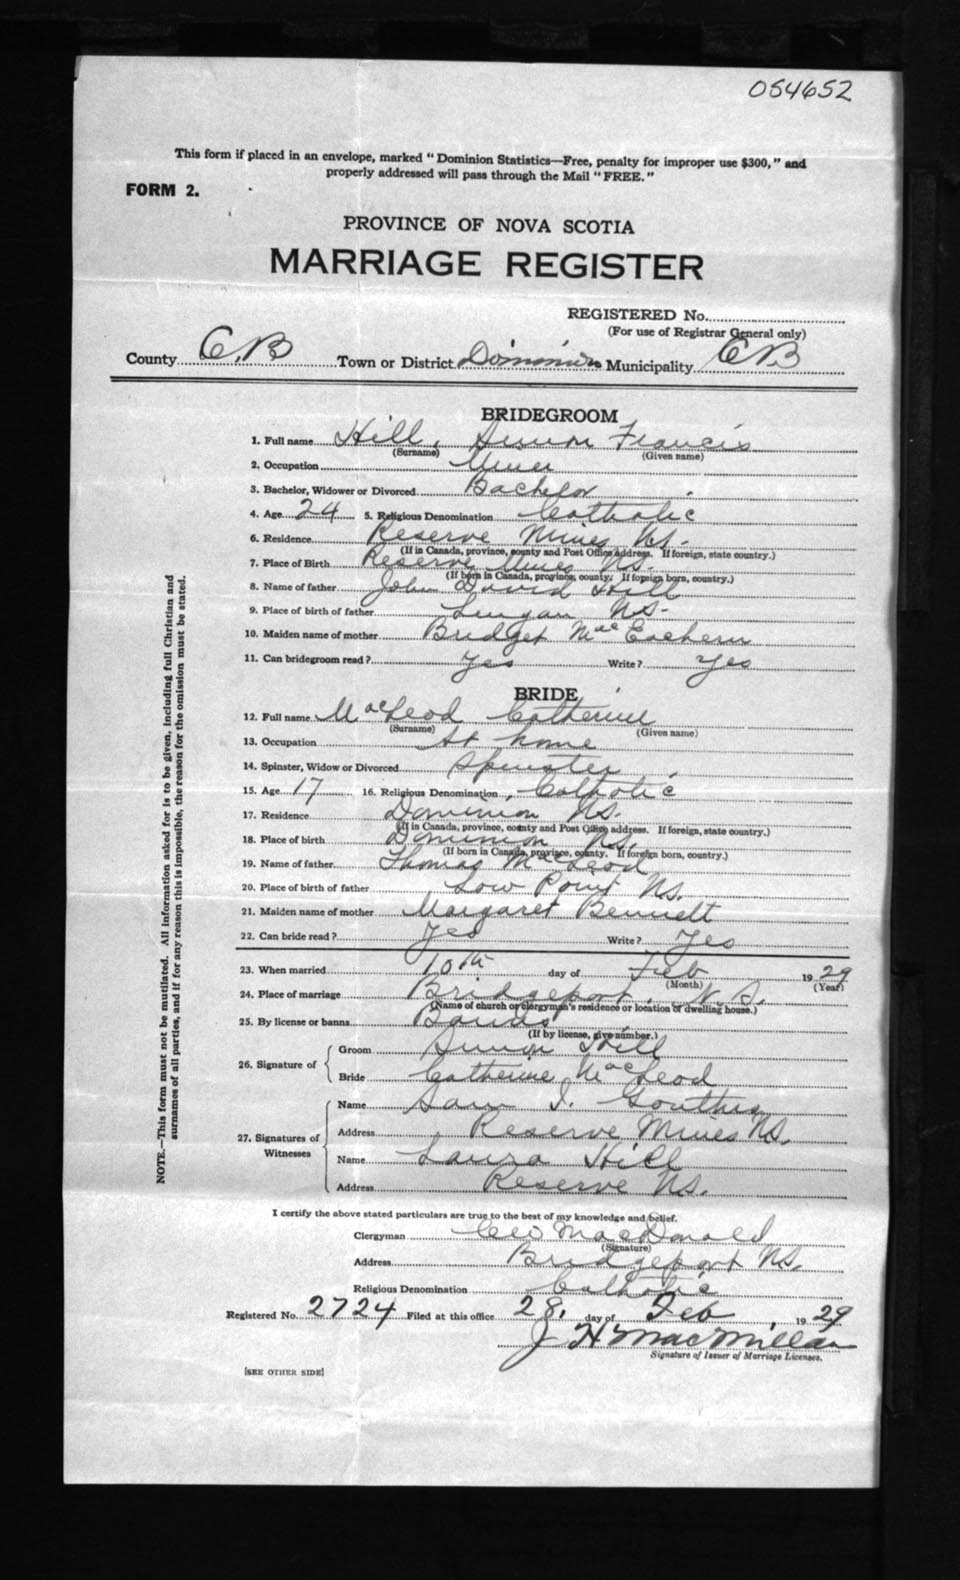 054652
This form if placed in an envelope, marked "Dominion Statistics—Free, penalty for improper use $300," and
properly addressed will pass through the Mail "FREE."
FORM 2.
PROVINCE OF NOVA SCOTIA
MARRIAGE REGISTER
REGISTERED No.
(For use of Registrar General only)
County C.B Town or District Dominion Municipality C.B
BRIDEGROOM
1. Full name Hill, Simon Francis
(Surname) (Given name)
2. Occupation Miner
3. Bachelor, Widower or Divorced Bachelor
4. Age 24 5. Religious Denomination Catholic
6. Residence Reserve Mines N.S.
(If in Canada, province, county and Post Office address. If foreign, state country.)
7. Place of Birth Reserve Mines N.S.
(If born in Canada, province, county. If foreign born, country.)
8. Name of father John David Hill
9. Place of birth of father Lingan N.S.
10. Maiden name of mother Bridget MacEachern
11. Can bridegroom read? Yes Write? Yes
BRIDE
12. Full name MacLeod Catherine
(Surname) (Given name)
13. Occupation At home
14. Spinster, Widow or Divorced Spinster
15. Age 17 16. Religious Denomination Catholic
17. Residence Dominion N.S.
(If in Canada, province, county and Post Office address. If foreign, state country.)
18. Place of birth Dominion N.S.
(If born in Canada, province, county. If foreign born, country.)
19. Name of father Thomas MacLeod
20. Place of birth of father Low Point N.S.
21. Maiden name of mother Margaret Bennett
22. Can bride read? Yes Write? Yes
23. When married 10th day of Feb 1929
(Month) (Year)
24. Place of marriage Bridgeport, N.S.
(Name of church or clergyman's residence or location of dwelling house.)
25. By license or banns Banns
(If by license, give number.)
26. Signature of
Groom Simon Hill
Bride Catherine MacLeod
27. Signatures of Witnesses
Name Sam J.
Address Reserve Mines N.S.
Name Laura Hill
Address Reserve N.S.
I certify the above stated particulars are true to the best of my knowledge and belief.
Clergyman MacDonald
(Signature)
Address Bridgeport N.S.
Religious Denomination Catholic
Registered No. 2724 Filed at this office 28. day of Feb 1929
J H MacMillan
Signature of Issuer of Marriage Licenses.
[SEE OTHER SIDE]
NOTE.—This form must not be mutilated. All information asked for is to be given, including full Christian and
surnames of all parties, and if for any reason this is impossible, the reason for the omission must be stated.